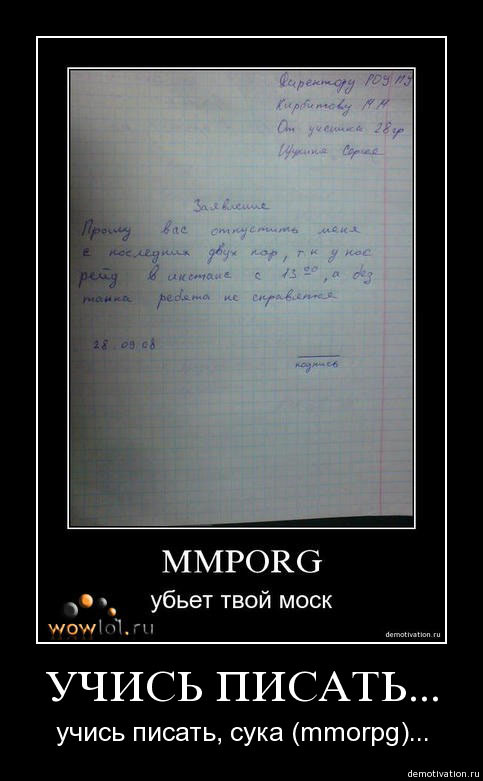 Директору РОУ ПУ
Кирбитову М.М
От ученика 28 гр
Щукина Сергея
Заявление
Прошу вас отпустить меня
с последних двух пар, т.к у нас
рейд в инстанс с 13⁰⁰, а без
танка ребята не справятся
28.09.08
подпись
MMPORG
убьет твой моск
wowlol.ru
demotivation.ru
УЧИСЬ ПИСАТЬ...
учись писать, сука (mmorpg)...
demotivation.ru